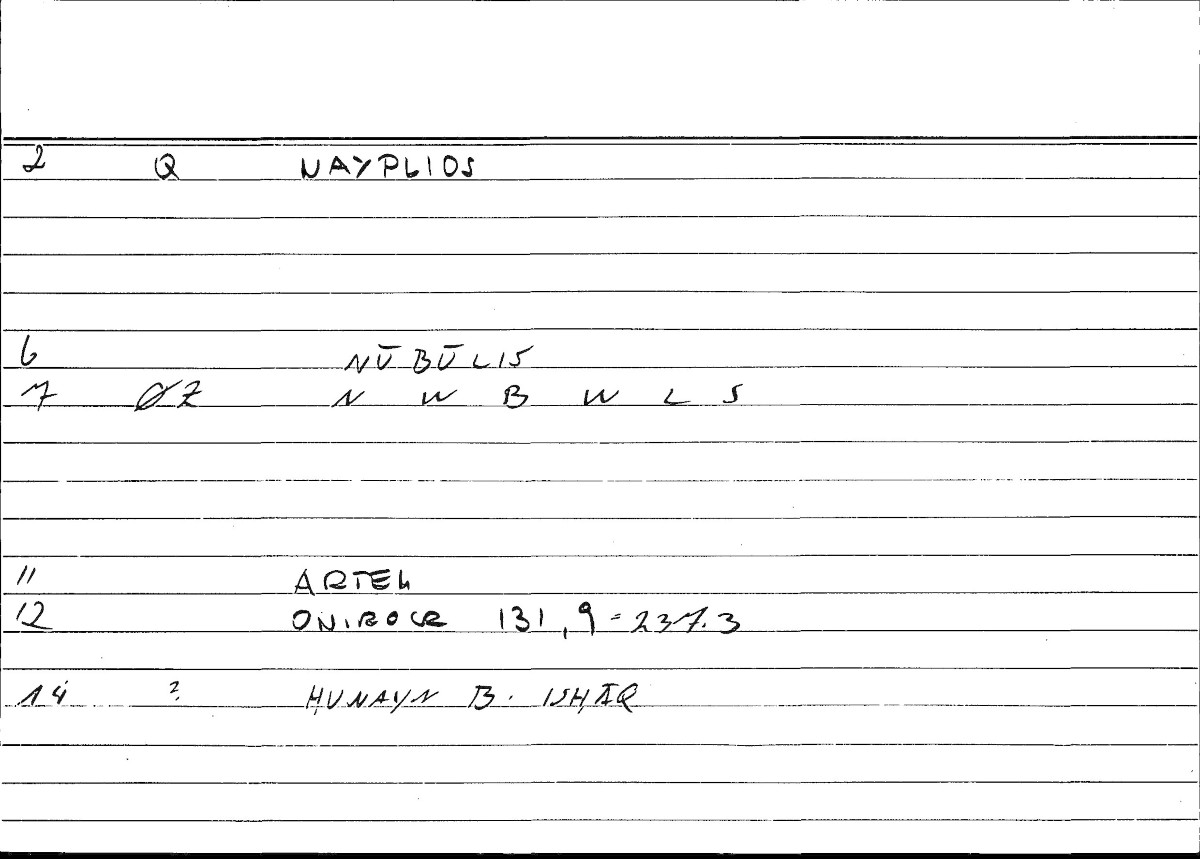 2 Q NAYPLIOS
6 NŪBŪLIS
7 ØZ N W B W L S
11 ARTEM
12 ONIROCR 131,9 = 237.3
14 ? ḤUNAYN B. ISḤĀQ